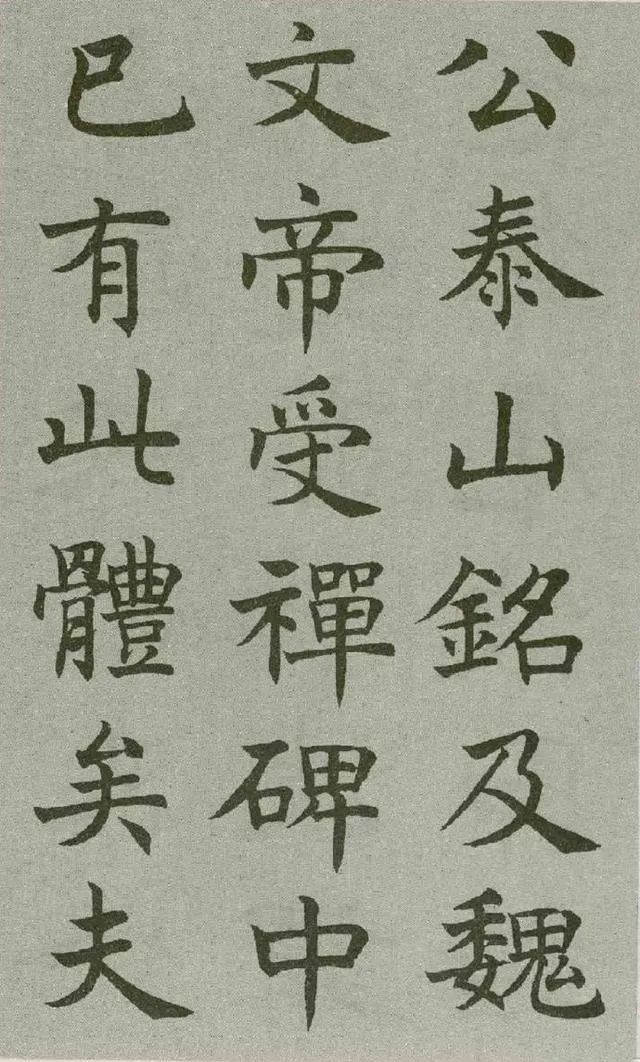 公泰山銘及魏
文帝受禪碑中
已有此體矣夫